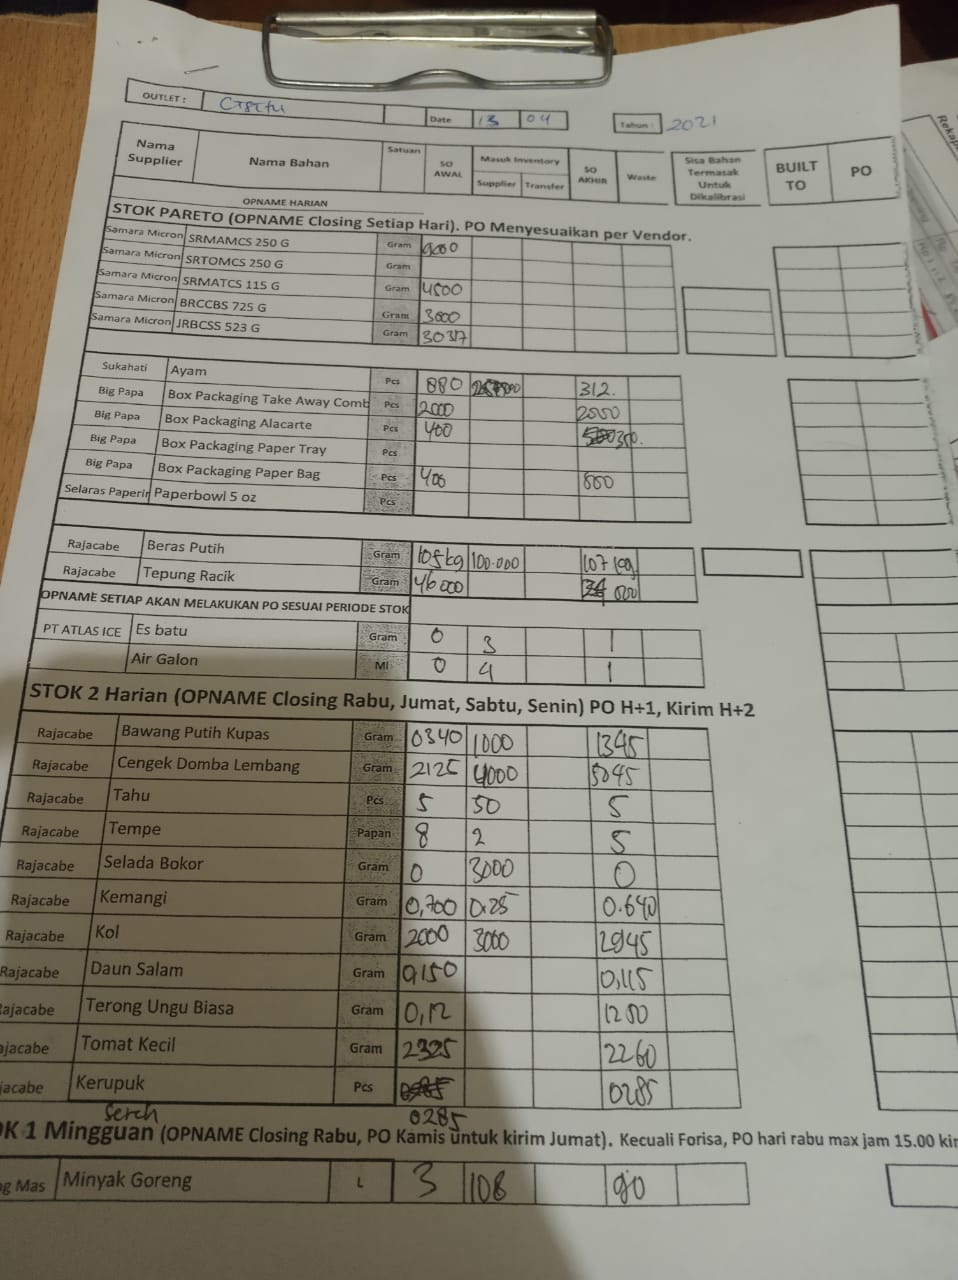 OUTLET : Cisitu Date 13 04 Tahun : 2021
Nama Supplier Nama Bahan Satuan SO AWAL Masuk Inventory Supplier Transfer SO AKHIR Waste Sisa Bahan Termasak Untuk Dikalibrasi BUILT TO PO
OPNAME HARIAN
STOK PARETO (OPNAME Closing Setiap Hari). PO Menyesuaikan per Vendor.
Samara Micron SRMAMCS 250 G Gram
Samara Micron SRTOMCS 250 G Gram
Samara Micron SRMATCS 115 G Gram 4500
Samara Micron BRCCBS 725 G Gram 3000
Samara Micron JRBCSS 523 G Gram
Sukahati Ayam Pcs 880 312.
Big Papa Box Packaging Take Away Comb Pcs 2000
Big Papa Box Packaging Alacarte Pcs 400 350.
Big Papa Box Packaging Paper Tray Pcs
Big Papa Box Packaging Paper Bag Pcs 400
Selaras Paperin Paperbowl 5 oz Pcs
Rajacabe Beras Putih Gram 105kg 100.000 107 kg
Rajacabe Tepung Racik Gram 46000
OPNAME SETIAP AKAN MELAKUKAN PO SESUAI PERIODE STOK
PT ATLAS ICE Es batu Gram 0 3 1
Air Galon Ml 0 4 1
STOK 2 Harian (OPNAME Closing Rabu, Jumat, Sabtu, Senin) PO H+1, Kirim H+2
Rajacabe Bawang Putih Kupas Gram 0340 1000 1345
Rajacabe Cengek Domba Lembang Gram 2125 4000 5045
Rajacabe Tahu Pcs 5 50 5
Rajacabe Tempe Papan 8 2 5
Rajacabe Selada Bokor Gram 0 3000 0
Rajacabe Kemangi Gram 0,700 0.25 0.640
Rajacabe Kol Gram 2000 3000 2945
Rajacabe Daun Salam Gram 0,115
Rajacabe Terong Ungu Biasa Gram 0,12 1250
ajacabe Tomat Kecil Gram 2325 2260
jacabe Kerupuk Pcs 0285
sereh 0285
OK 1 Mingguan (OPNAME Closing Rabu, PO Kamis untuk kirim Jumat). Kecuali Forisa, PO hari rabu max jam 15.00 kir
g Mas Minyak Goreng L 3 108 90